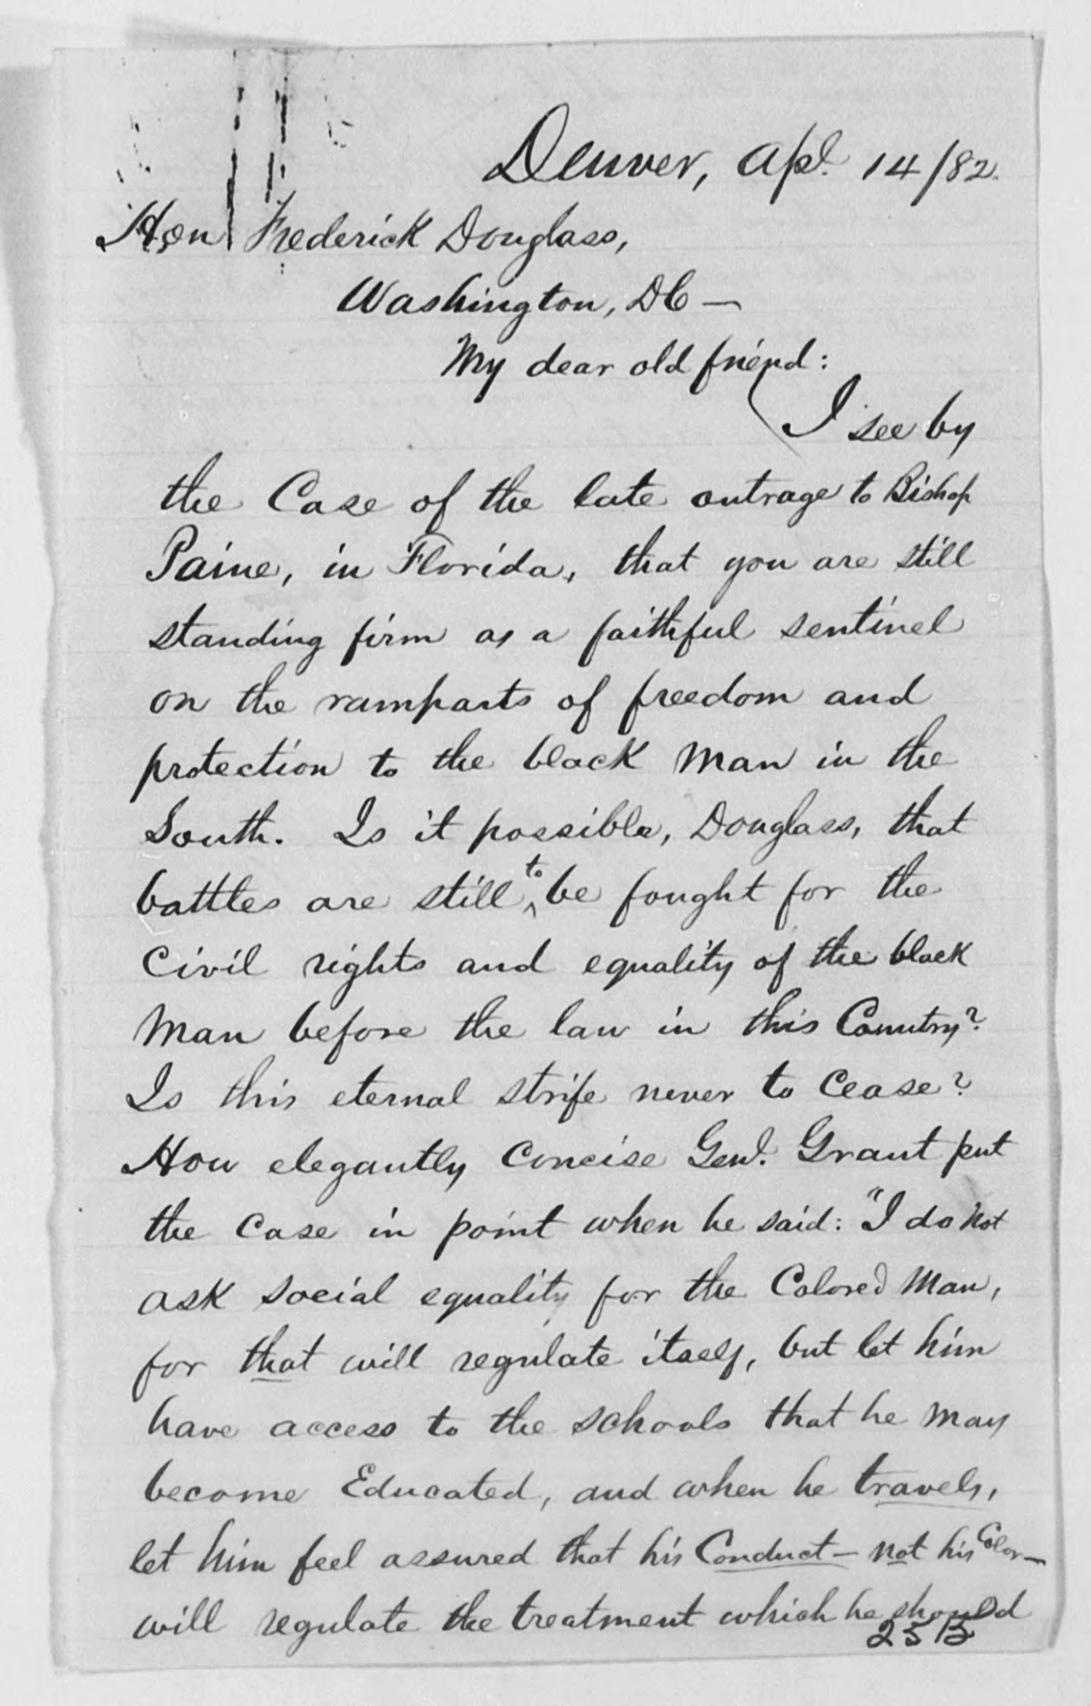 Denver, Apl. 14/82.
Hon Frederick Douglass,
Washington, DC —
My dear old friend:
I see by
the Case of the late outrage to Bishop
Paine, in Florida, that you are still
standing firm as a faithful sentinel
on the ramparts of freedom and
protection to the black man in the
South. Is it possible, Douglass, that
battles are still to be fought for the
Civil rights and equality of the black
Man before the law in this Country?
Is this eternal strife never to Cease?
How elegantly Concise Genl. Grant put
the Case in point when he said: "I do not
ask social equality for the Colored Man,
for that will regulate itself, but let him
have access to the schools that he may
become Educated, and when he travels,
let him feel assured that his Conduct — not his Color —
will regulate the treatment which he should
25 B